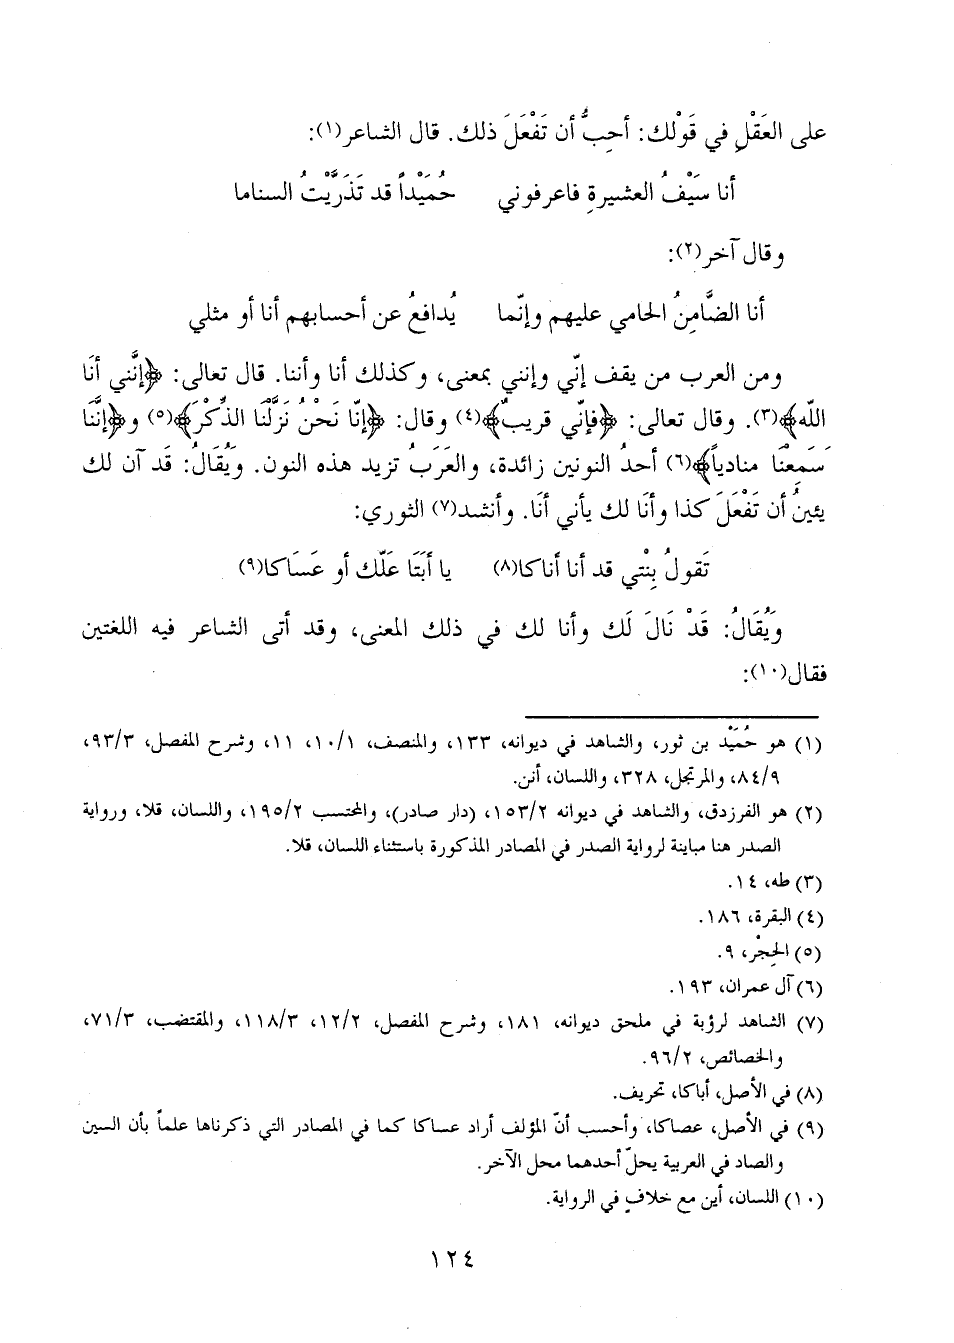 على العَقْلِ في قَوْلك: أحِبُّ أن تَفْعَلَ ذلك. قال الشاعر(١):
أنا سَيْفُ العشيرةِ فاعرفوني حُمَيْداً قد تَذَرَّيْتُ السناما
وقال آخر(٢):
أنا الضَّامِنُ الحامي عليهم وإنّما يُدافعُ عن أحسابهم أنا أو مثلي
ومن العرب من يقف إنّي وإنني بمعنى، وكذلك أنا وأننا. قال تعالى: ﴿إنَّني أنَا
اللّه﴾(٣). وقال تعالى: ﴿فإنّي قريبٌ﴾(٤) وقال: ﴿إنّا نَحْنُ نَزَّلْنَا الذِّكْرَ﴾(٥) و﴿إنَّنَا
سَمِعْنَا منادياً﴾(٦) أحدُ النونين زائدة، والعَرَبُ تزيد هذه النون. وَيُقَالُ: قَد آن لك
يئينُ أن تَفْعَلَ كذا وأنَا لك يأني أنَا. وأنشد(٧) الثوري:
تَقولُ بِنْتي قد أنا أناكا(٨) يا أبَتَا عَلّك أو عَسَاكا(٩)
وَيُقَالُ: قَدْ نَالَ لَك وأنا لك في ذلك المعنى، وقد أتى الشاعر فيه اللغتين
فقال(١٠):
(١) هو حُمَيْد بن ثور، والشاهد في ديوانه، ١٣٣، والمنصف، ١٠/١، ١١، وشرح المفصل، ٩٣/٣،
٨٤/٩، والمرتجل، ٣٢٨، واللسان، أنن.
(٢) هو الفرزدق، والشاهد في ديوانه ١٥٣/٢، (دار صادر)، والمحتسب ١٩٥/٢، واللسان، قلا، ورواية
الصدر هنا مباينة لرواية الصدر في المصادر المذكورة باستثناء اللسان، قلا.
(٣) طه، ١٤.
(٤) البقرة، ١٨٦.
(٥) الحِجْر، ٩.
(٦) آل عمران، ١٩٣.
(٧) الشاهد لرؤبة في ملحق ديوانه، ١٨١، وشرح المفصل، ١٢/٢، ١١٨/٣، والمقتضب، ٧١/٣،
والخصائص، ٩٦/٢.
(٨) في الأصل، أباكا، تحريف.
(٩) في الأصل، عصاكا، وأحسب أنّ المؤلف أراد عساكا كما في المصادر التي ذكرناها علماً بأن السين
والصاد في العربية يحلّ أحدهما محل الآخر.
(١٠) اللسان، أين مع خلافٍ في الرواية.
١٢٤